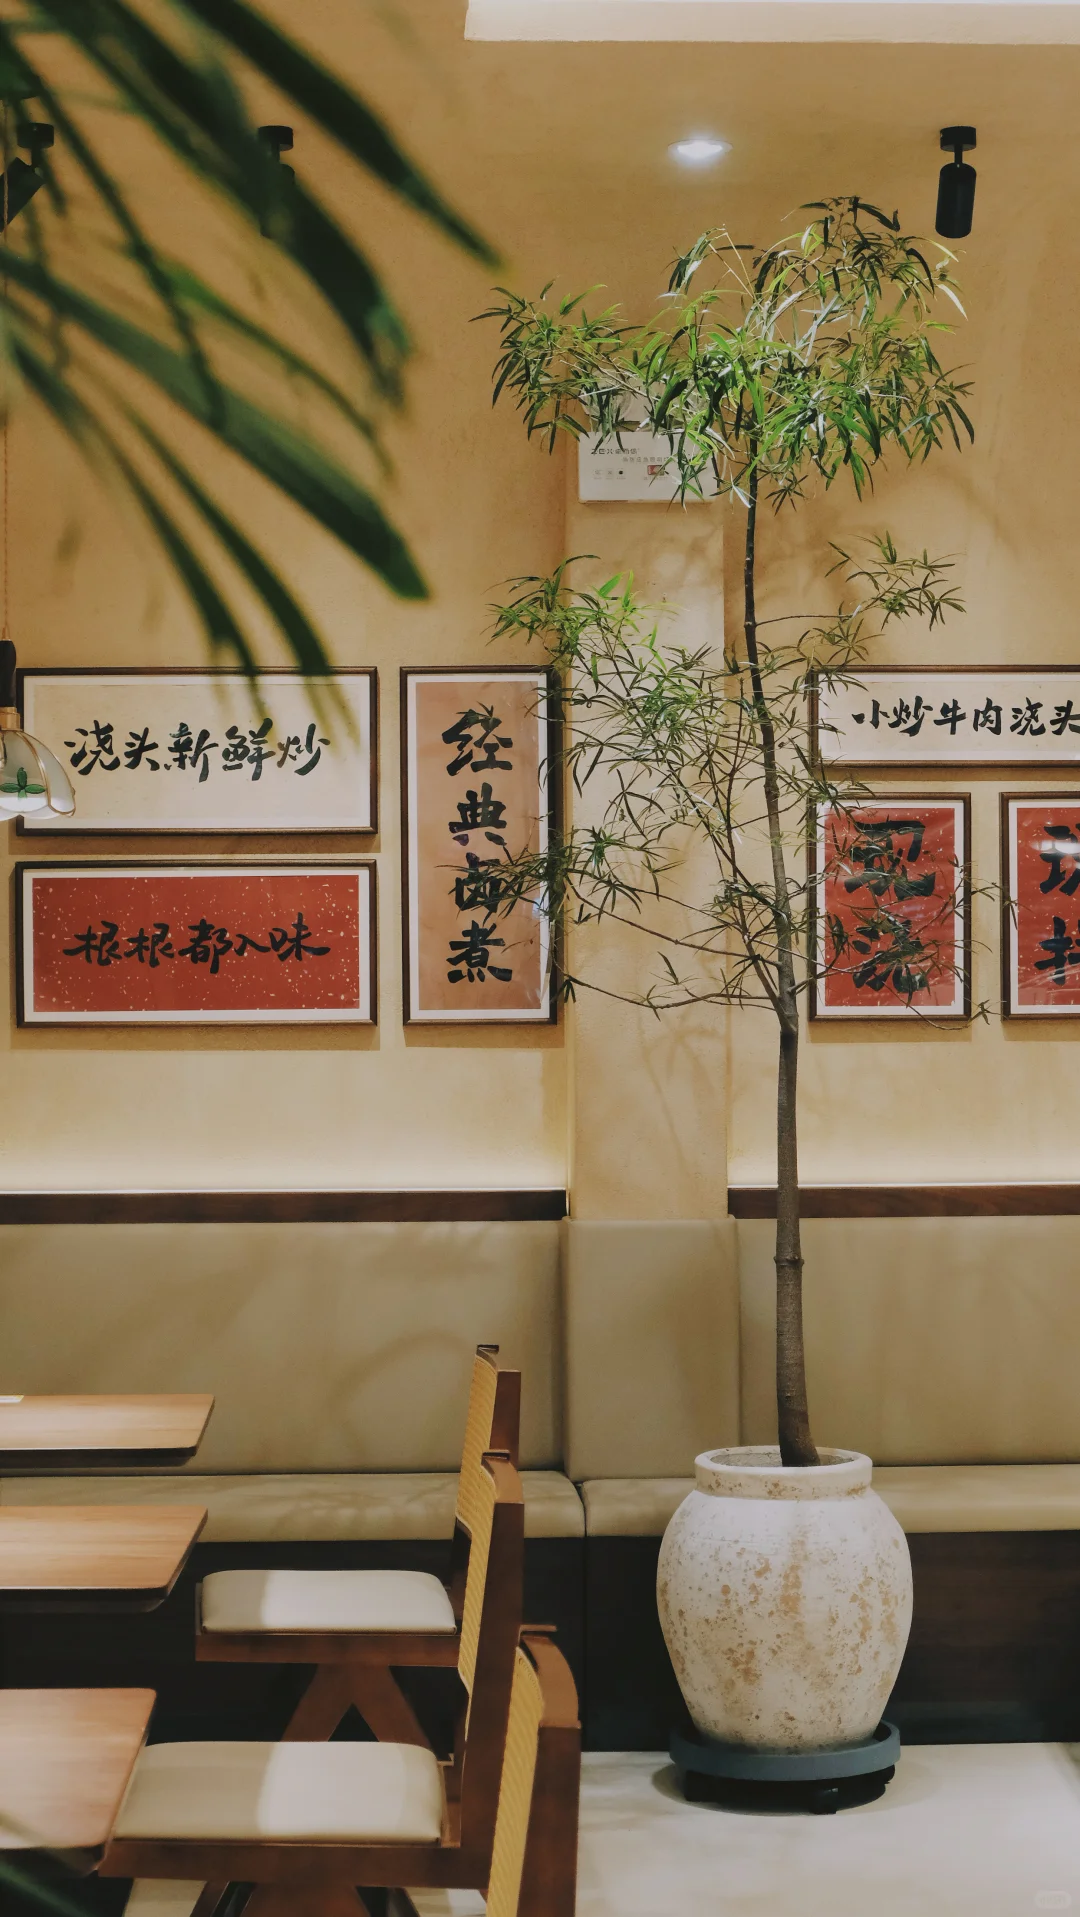 浇头新鲜炒
根根都入味
经典卤煮
小炒牛肉浇头
现浇
现